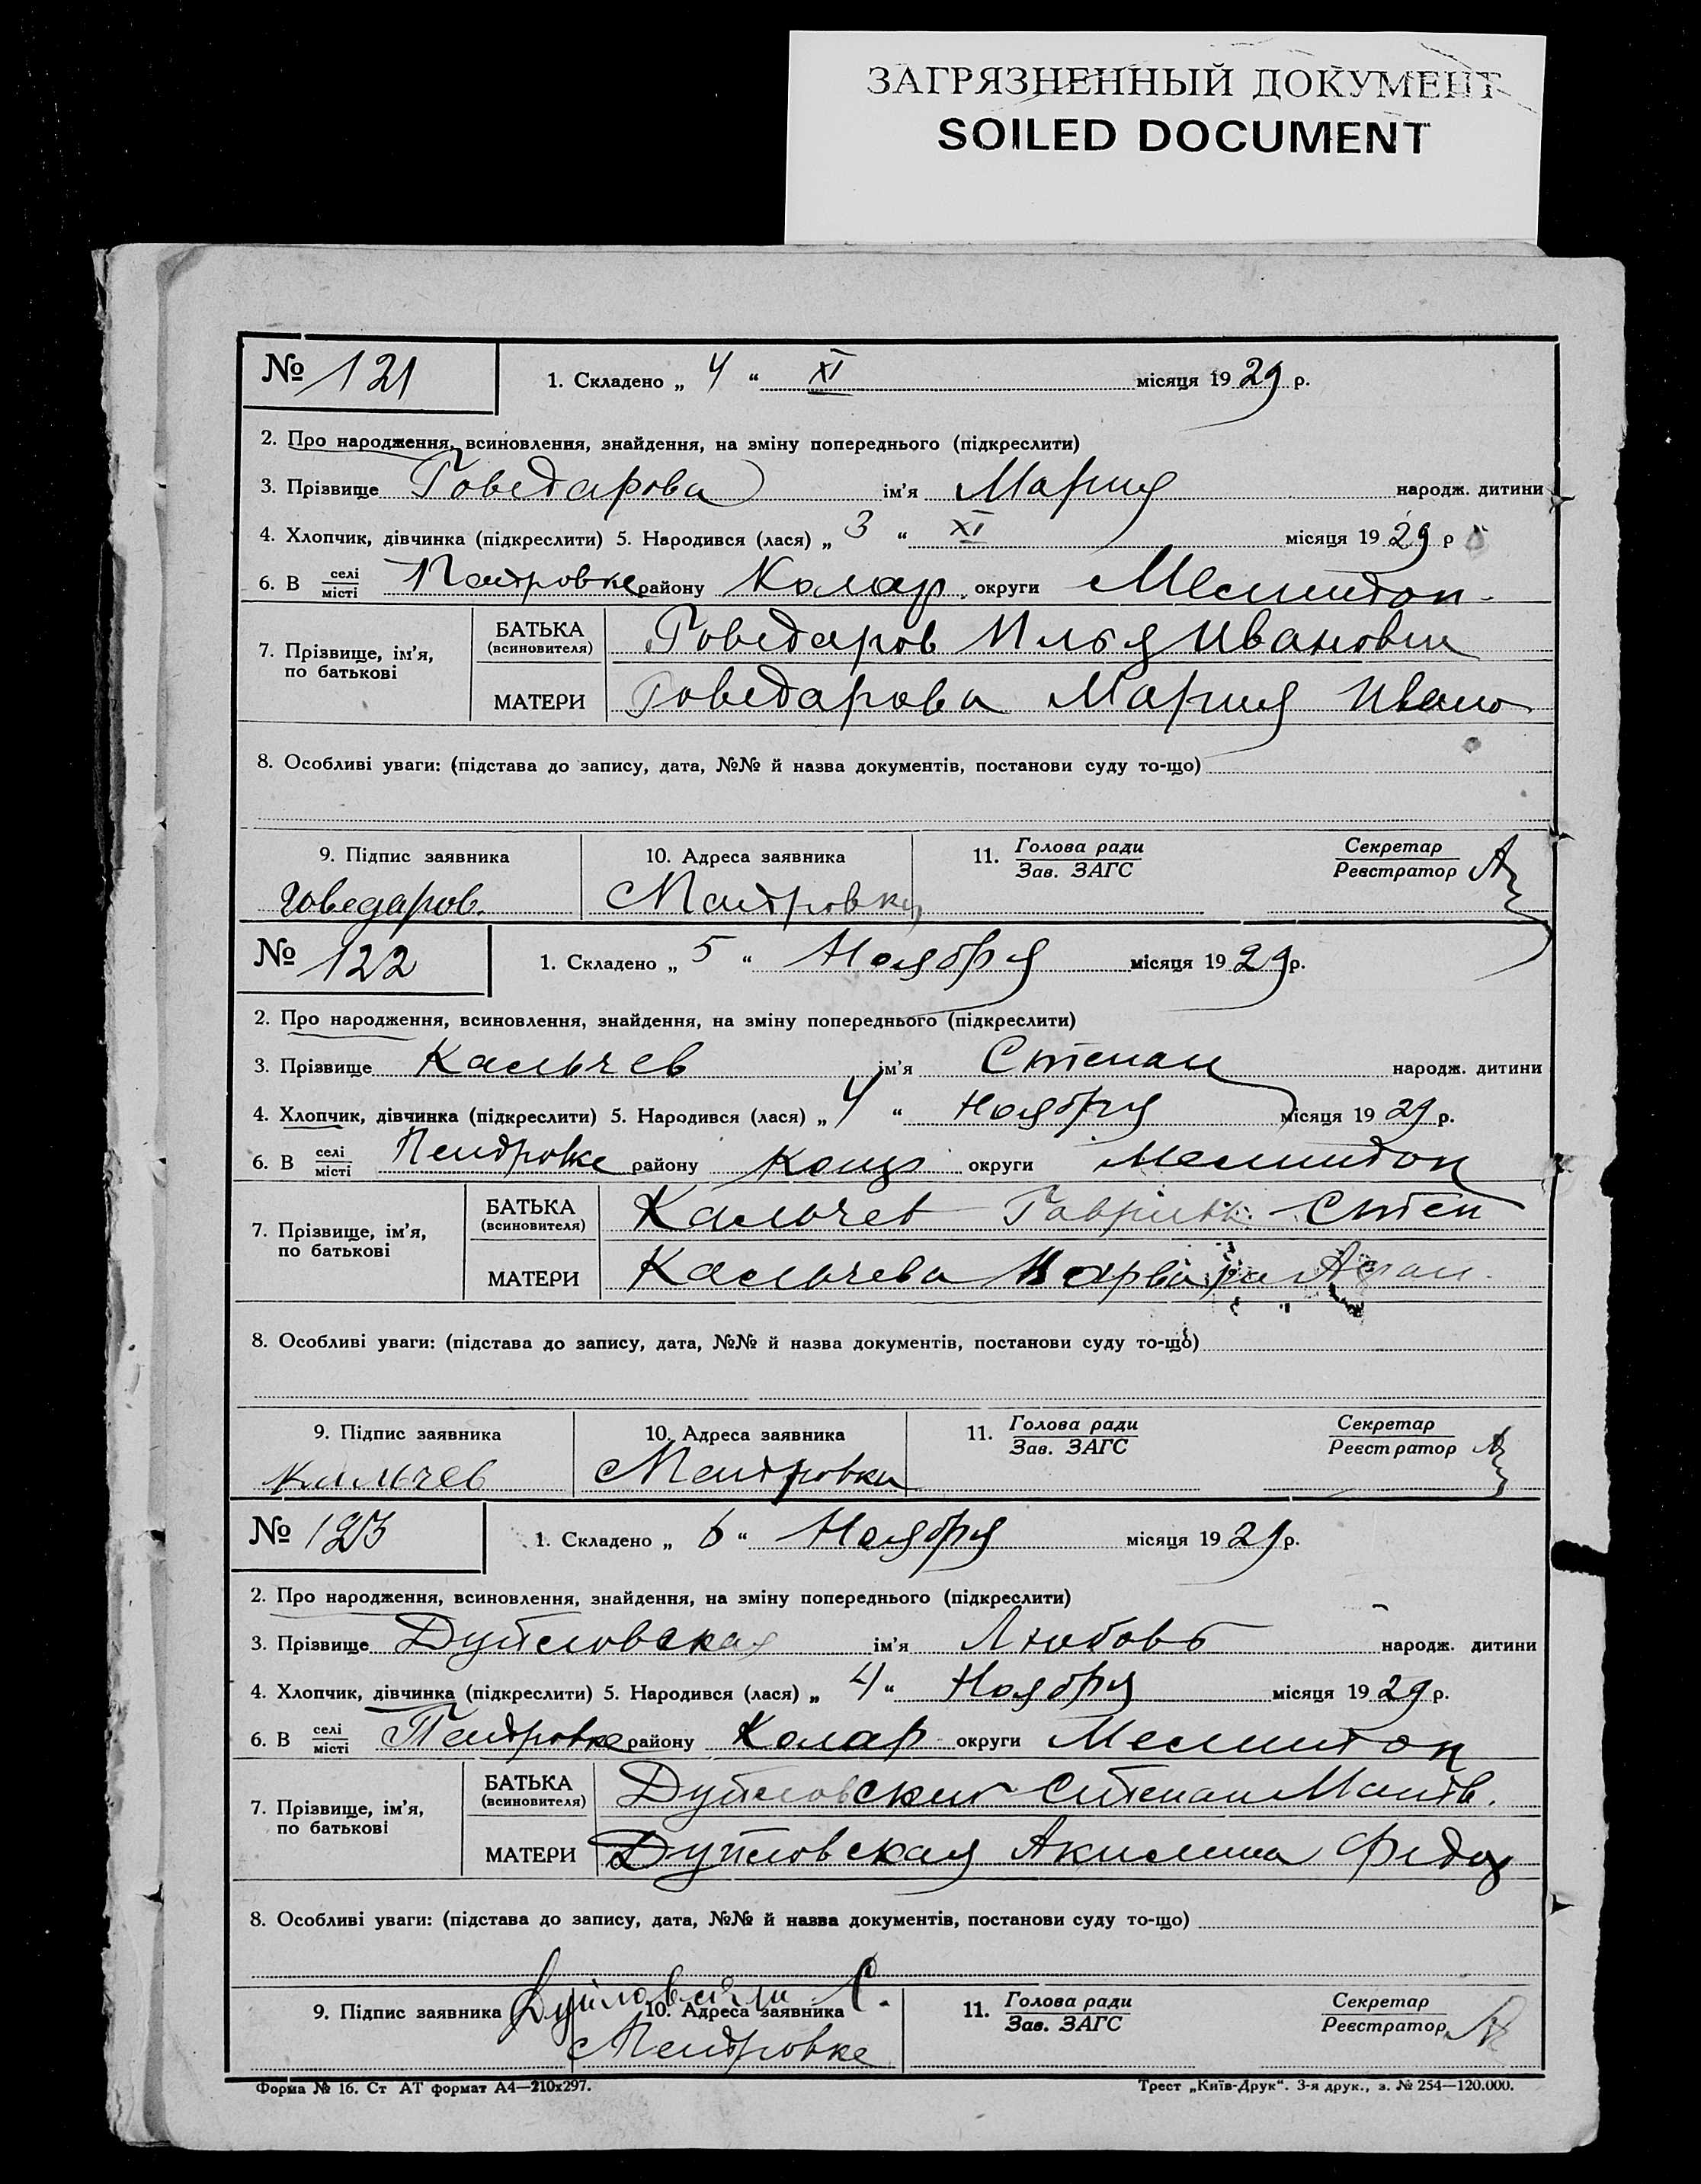 ЗАГРЯЗНЕННЫЙ ДОКУМЕНТ
SOILED DOCUMENT
№ 121
1. Складено „ 4 “ XI місяця 1929 р.
2. Про народження, всиновлення, знайдення, на зміну попереднього (підкреслити)
3. Прізвище Говедарова ім'я Мария народж. дитини
4. Хлопчик, дівчинка (підкреслити) 5. Народився (лася) „ 3 “ XI місяця 1929 р
6. В селі місті района Колар. округи
7. Прізвище, ім'я, по батькові
БАТЬКА (всиновителя) Говедаров Илья Иванович
МАТЕРИ Говедарова Мария Ивано
8. Особливі уваги: (підстава до запису, дата, №№ й назва документів, постанови суду то-що)
9. Підпис заявника 10. Адреса заявника 11. Голова ради Зав. ЗАГС Секретар Реєстратор
Говедаров.
№ 122
1. Складено „ 5 “ Ноября місяця 1929 р.
2. Про народження, всиновлення, знайдення, на зміну попереднього (підкреслити)
3. Прізвище Кальчев ім'я Степан народж. дитини
4. Хлопчик, дівчинка (підкреслити) 5. Народився (лася) „ 4 “ Ноября місяця 1929 р.
6. В селі місті району округи
7. Прізвище, ім'я, по батькові
БАТЬКА (всиновителя) Кальчев Гаврил Степ
МАТЕРИ Кальчева Варвара
8. Особливі уваги: (підстава до запису, дата, №№ й назва документів, постанови суду то-що)
9. Підпис заявника 10. Адреса заявника 11. Голова ради Зав. ЗАГС Секретар Реєстратор
Кальчев
№ 123
1. Складено „ 6 “ Ноября місяця 1929 р.
2. Про народження, всиновлення, знайдення, на зміну попереднього (підкреслити)
3. Прізвище ім'я Любовь народж. дитини
4. Хлопчик, дівчинка (підкреслити) 5. Народився (лася) „ 4 “ Ноября місяця 1929 р.
6. В селі місті району Колар округи
7. Прізвище, ім'я, по батькові
БАТЬКА (всиновителя) Степан Матв.
МАТЕРИ Акилина Федор
8. Особливі уваги: (підстава до запису, дата, №№ й назва документів, постанови суду то-що)
9. Підпис заявника 10. Адреса заявника 11. Голова ради Зав. ЗАГС Секретар Реєстратор
Форма № 16. Ст АТ формат А4—210x297.
Трест „Київ-Друк“. 3-я друк., з. № 254—120.000.